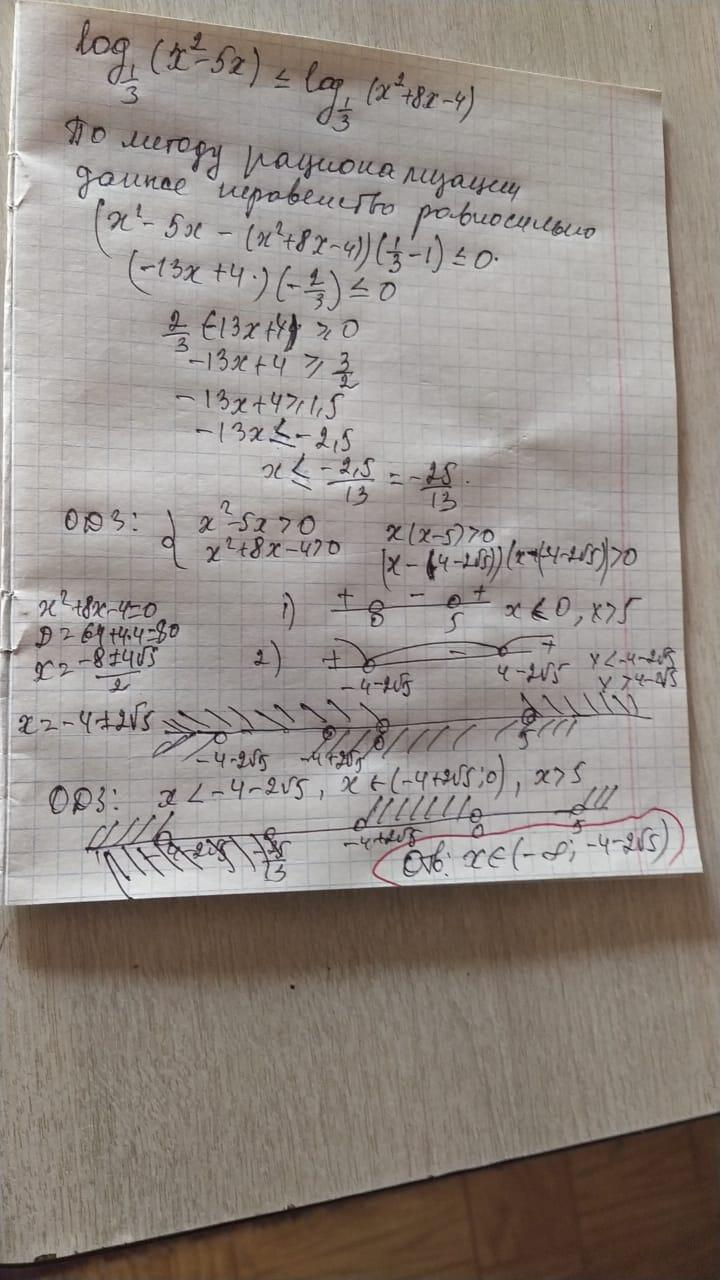 log_{1/3} (x²-5x) ≤ log_{1/3} (x²+8x-4)
По методу рационализации
данное неравенство равносильно
(x²-5x-(x²+8x-4))(1/3-1) ≤ 0.
(-13x+4.)(-2/3) ≤ 0
2/3 (-13x+4) ≥ 0
-13x+4 ≥ 3/2
-13x+4 ≥ 1,5
-13x ≤ -2,5
x ≤ -2,5/13 = -25/13.
ОДЗ: { x²-5x>0 x(x-5)>0
x²+8x-4>0 (x-(4-2√5))(x-(4-2√5))>0
x²+8x-4=0 1) + 0 - 5 + x<0, x>5
D=64+4·4=80
x= -8±4√5/2 2) + -4-2√5 - 4-2√5 + x<-4-2√5
x>4-2√5
x=-4±2√5
-4-2√5 -4+2√5 0 5
ОДЗ: x<-4-2√5, x∈(-4+2√5;0), x>5
-4-2√5 -25/13 -4+2√5 0 5
Отв: x∈(-∞; -4-2√5)